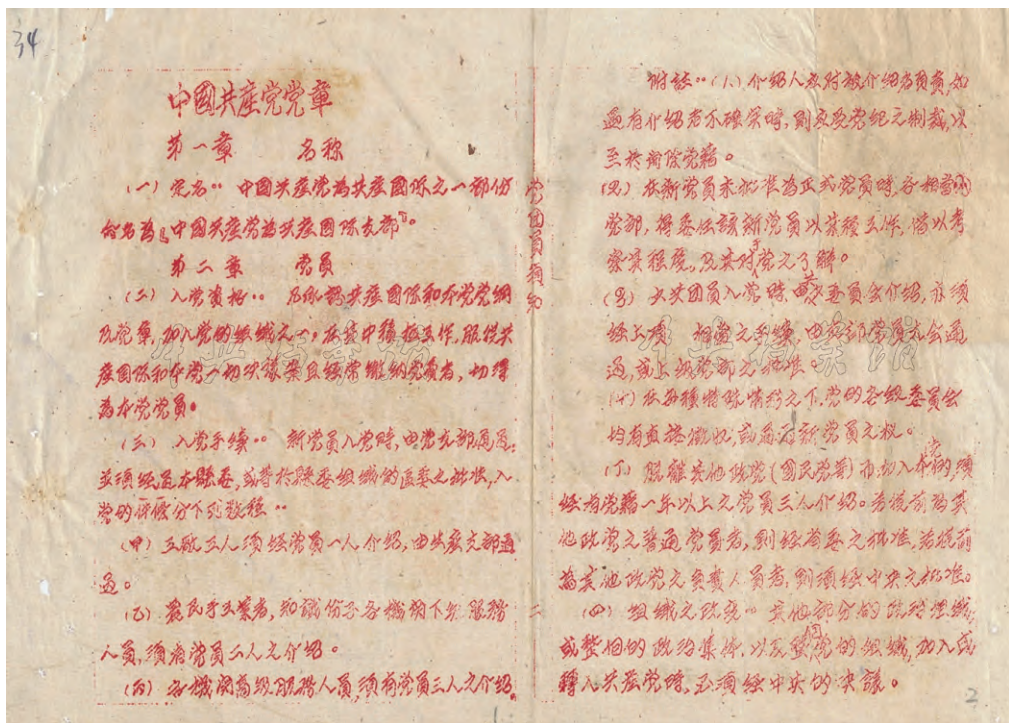 34
中國共產党党章
第一章 名称
(一) 定名：中國共產党為共產國际之一部份
命名為『中國共產党為共產國际支部』。
第二章 党员
(二) 入党資格：凡承認共產國际和本党党綱
及党章，加入党的組織之一，在其中積極工作，服従共
產國际和本党一切决議案且経常繳纳党費者，均得
為本党党员。
(三) 入党手續：新党员入党時，由党支部通过，
並須経过本縣委，或等於縣委組織的區委之批准，入
党的條件分下列数種：
(甲) 工厰工人須経党员一人介紹，由生產支部通
过。
(乙) 農民手工業者，知識份子各機関下级服務
人员，須有党员二人之介紹。
(丙) 各機関高级服務人员，須有党员三人之介紹，
党團員須知
二
附註：(1) 介紹人应对被介紹者負責，如
遇有介紹者不確实時，則应受党纪之制裁，以
至於開除党籍。
(2) 在新党员未批准為正式党员時，各相當的
党部，得委任該新党员以某種工作，借以考
察其程度，及其对於党之了解。
經上層 相當之手續，由党部党员大会通
过，或上级党部之批准
(十) 在各種特殊情形之下，党的各级委员会
均有直接徵收 新党员之权。
(丁) 脱離其他政党(國民党等)而加入本党的須
経有党籍一年以上之党员三人介紹。若従前為其
他政党之普通党员者，則経省委之批准，若従前
為其他政党之負責人员者，則須経中央之批准。
(四) 組織之改变：其他部分的政治組織，
或整個的政治集体，以及整個党的組織，加入或
轉入共產党時，必須経中央的决議。
1
2